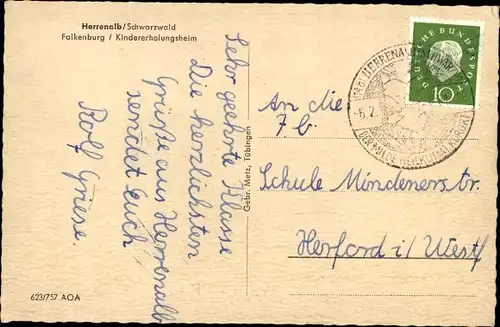 Herrenalb/Schwarzwald
Falkenburg / Kindererholungsheim
Sehr geehrte Klasse
Die herzlichsten
Grüße aus Herrenalb
sendet Euch
Rolf Griese.
Gebr. Metz, Tübingen
623/757 AOA
DEUTSCHE BUNDESPOST
10
HERRENALB
-6.2.
An die
7 b.
Schule Mindenerstr.
Herford i/Westf